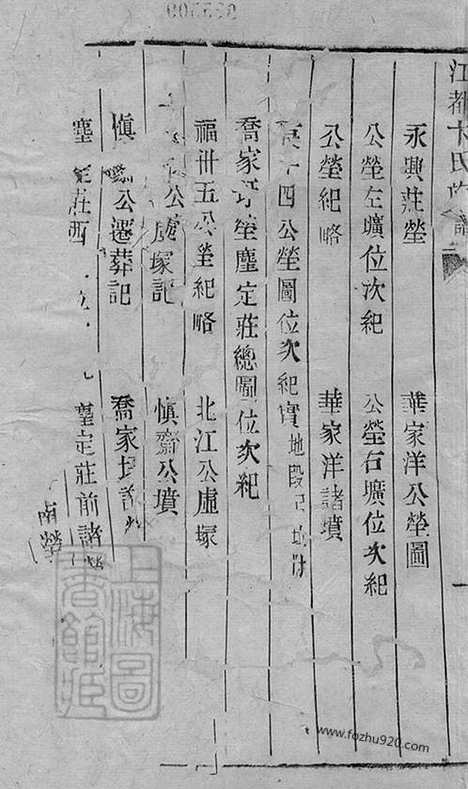 江都卞氏
永興莊塋 華家洋公塋圖
公塋左壙位次紀 公塋右壙位次紀
公塋紀略 華家洋諸墳
十四公塋圖位次紀實
喬家 塋塵定莊總圖位次紀
福卅五公塋紀略 北江公虛塚
公虛塚記 慎齋公墳
慎 公遷葬記 喬家
塵定莊西 塵定莊前諸
南塋
上海圖書館藏
www.fozhu920.com